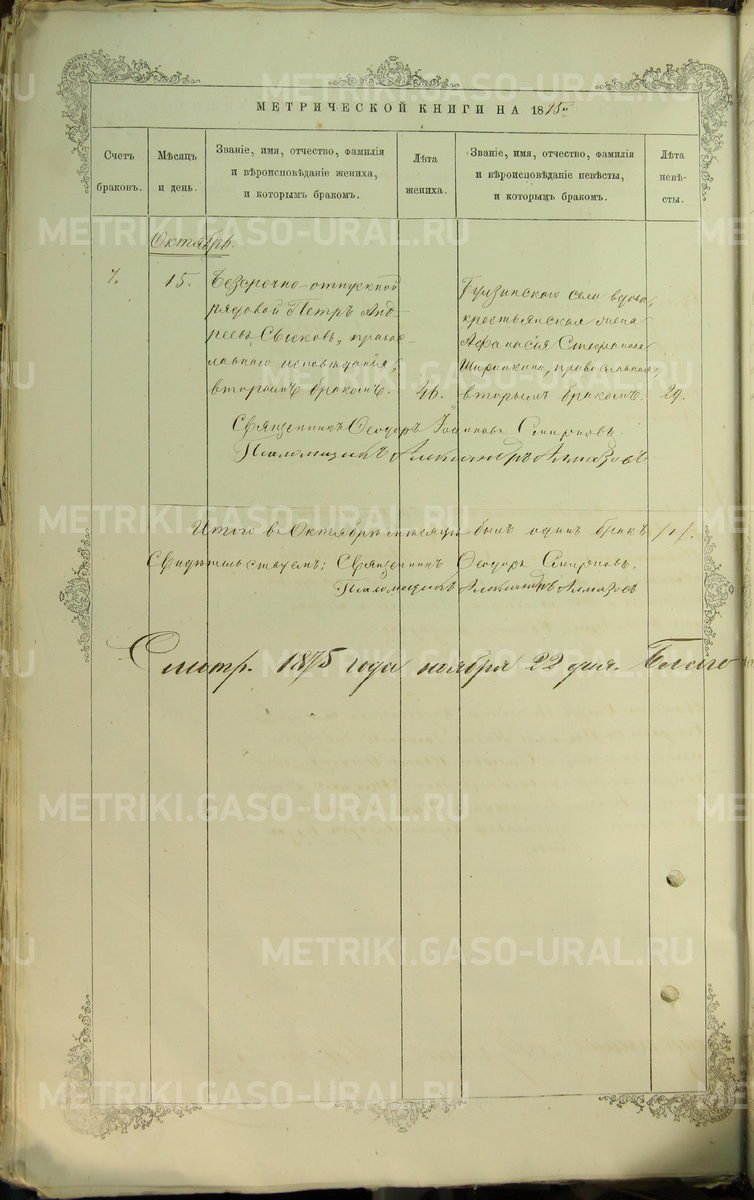 МЕТРИЧЕСКОЙ КНИГИ НА 1875 г.
Счетъ браковъ.
Мѣсяцъ и день.
Званіе, имя, отчество, фамилія
и вѣроисповѣданіе жениха,
и которымъ бракомъ.
Лѣта жениха.
Званіе, имя, отчество, фамилія
и вѣроисповѣданіе невѣсты,
и которымъ бракомъ.
Лѣта невѣ-
сты.
Октябрь.
7. 15.
Безсрочно-отпускной
рядовой Петръ Анд-
реевъ, право-
славнаго исповѣданія,
вторымъ бракомъ. 46.
села вдова,
крестьянская жена
Афанасія
православная,
вторымъ бракомъ. 29.
Священникъ Ѳеодоръ Іоанновъ Смирновъ.
Псаломщикъ Александръ Алмазовъ
Итого въ Октябрѣ мѣсяцѣ былъ одинъ бракъ /1/.
Свидѣтельствуемъ: Священникъ Ѳеодоръ Смирновъ.
Псаломщикъ Александръ Алмазовъ
Смотр. 1875 года ноября 22 дня. Благо
METRIKI.GASO-URAL.RU